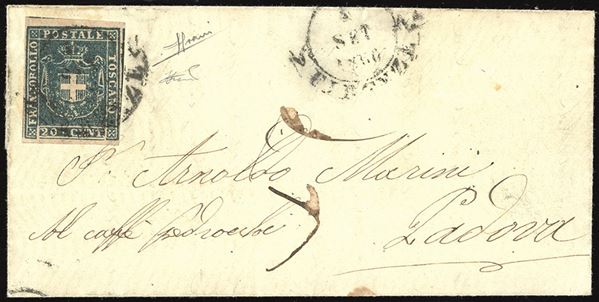 FRANCOBOLLO
POSTALE
TOSCANO
20 CENT
SET
1860
FIRENZE
5
S.r Arnoldo Marini
Al caffè Pedrocchi
Padova